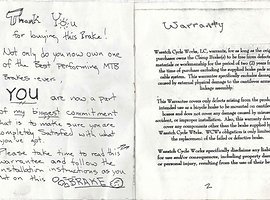 Thank You
for buying this Brake!
Not only do you now own one
of the Best performing MTB
Brakes ever.
YOU are now a part
of my biggest commitment
that is to make sure you are
completely Satisfied with what
you've got.
Please take time to read this
warrantee and follow the
installation instructions as you
put on this BRAKE
Warranty
Wasatch Cycle Works, LC, warrants, for as long as the original
purchaser owns the Brake(s) to be free from defects
materials or workmanship for the period of two (2) years from
the time of purchase excluding the supplied brake pads and
cable system. This warranty specifically excludes damage
caused by external physical damage to the cantilever arms or
linkage assembly.
This Warranty covers only defects arising from the proper
intended use as a bicycle brake to be mounted on cantilever
bosses and does not cover any damage caused by improper use,
accident, or improper installation. Also, this warranty does not
cover any components other than the original
Wasatch Cycle Works. WCW's obligation is only limited to
the replacement of the failed or defective brake.
Wasatch Cycle Works specifically disclaims any liability
for use and/or consequences, including property damage
or personal injury, resulting from the use of their brakes.
2